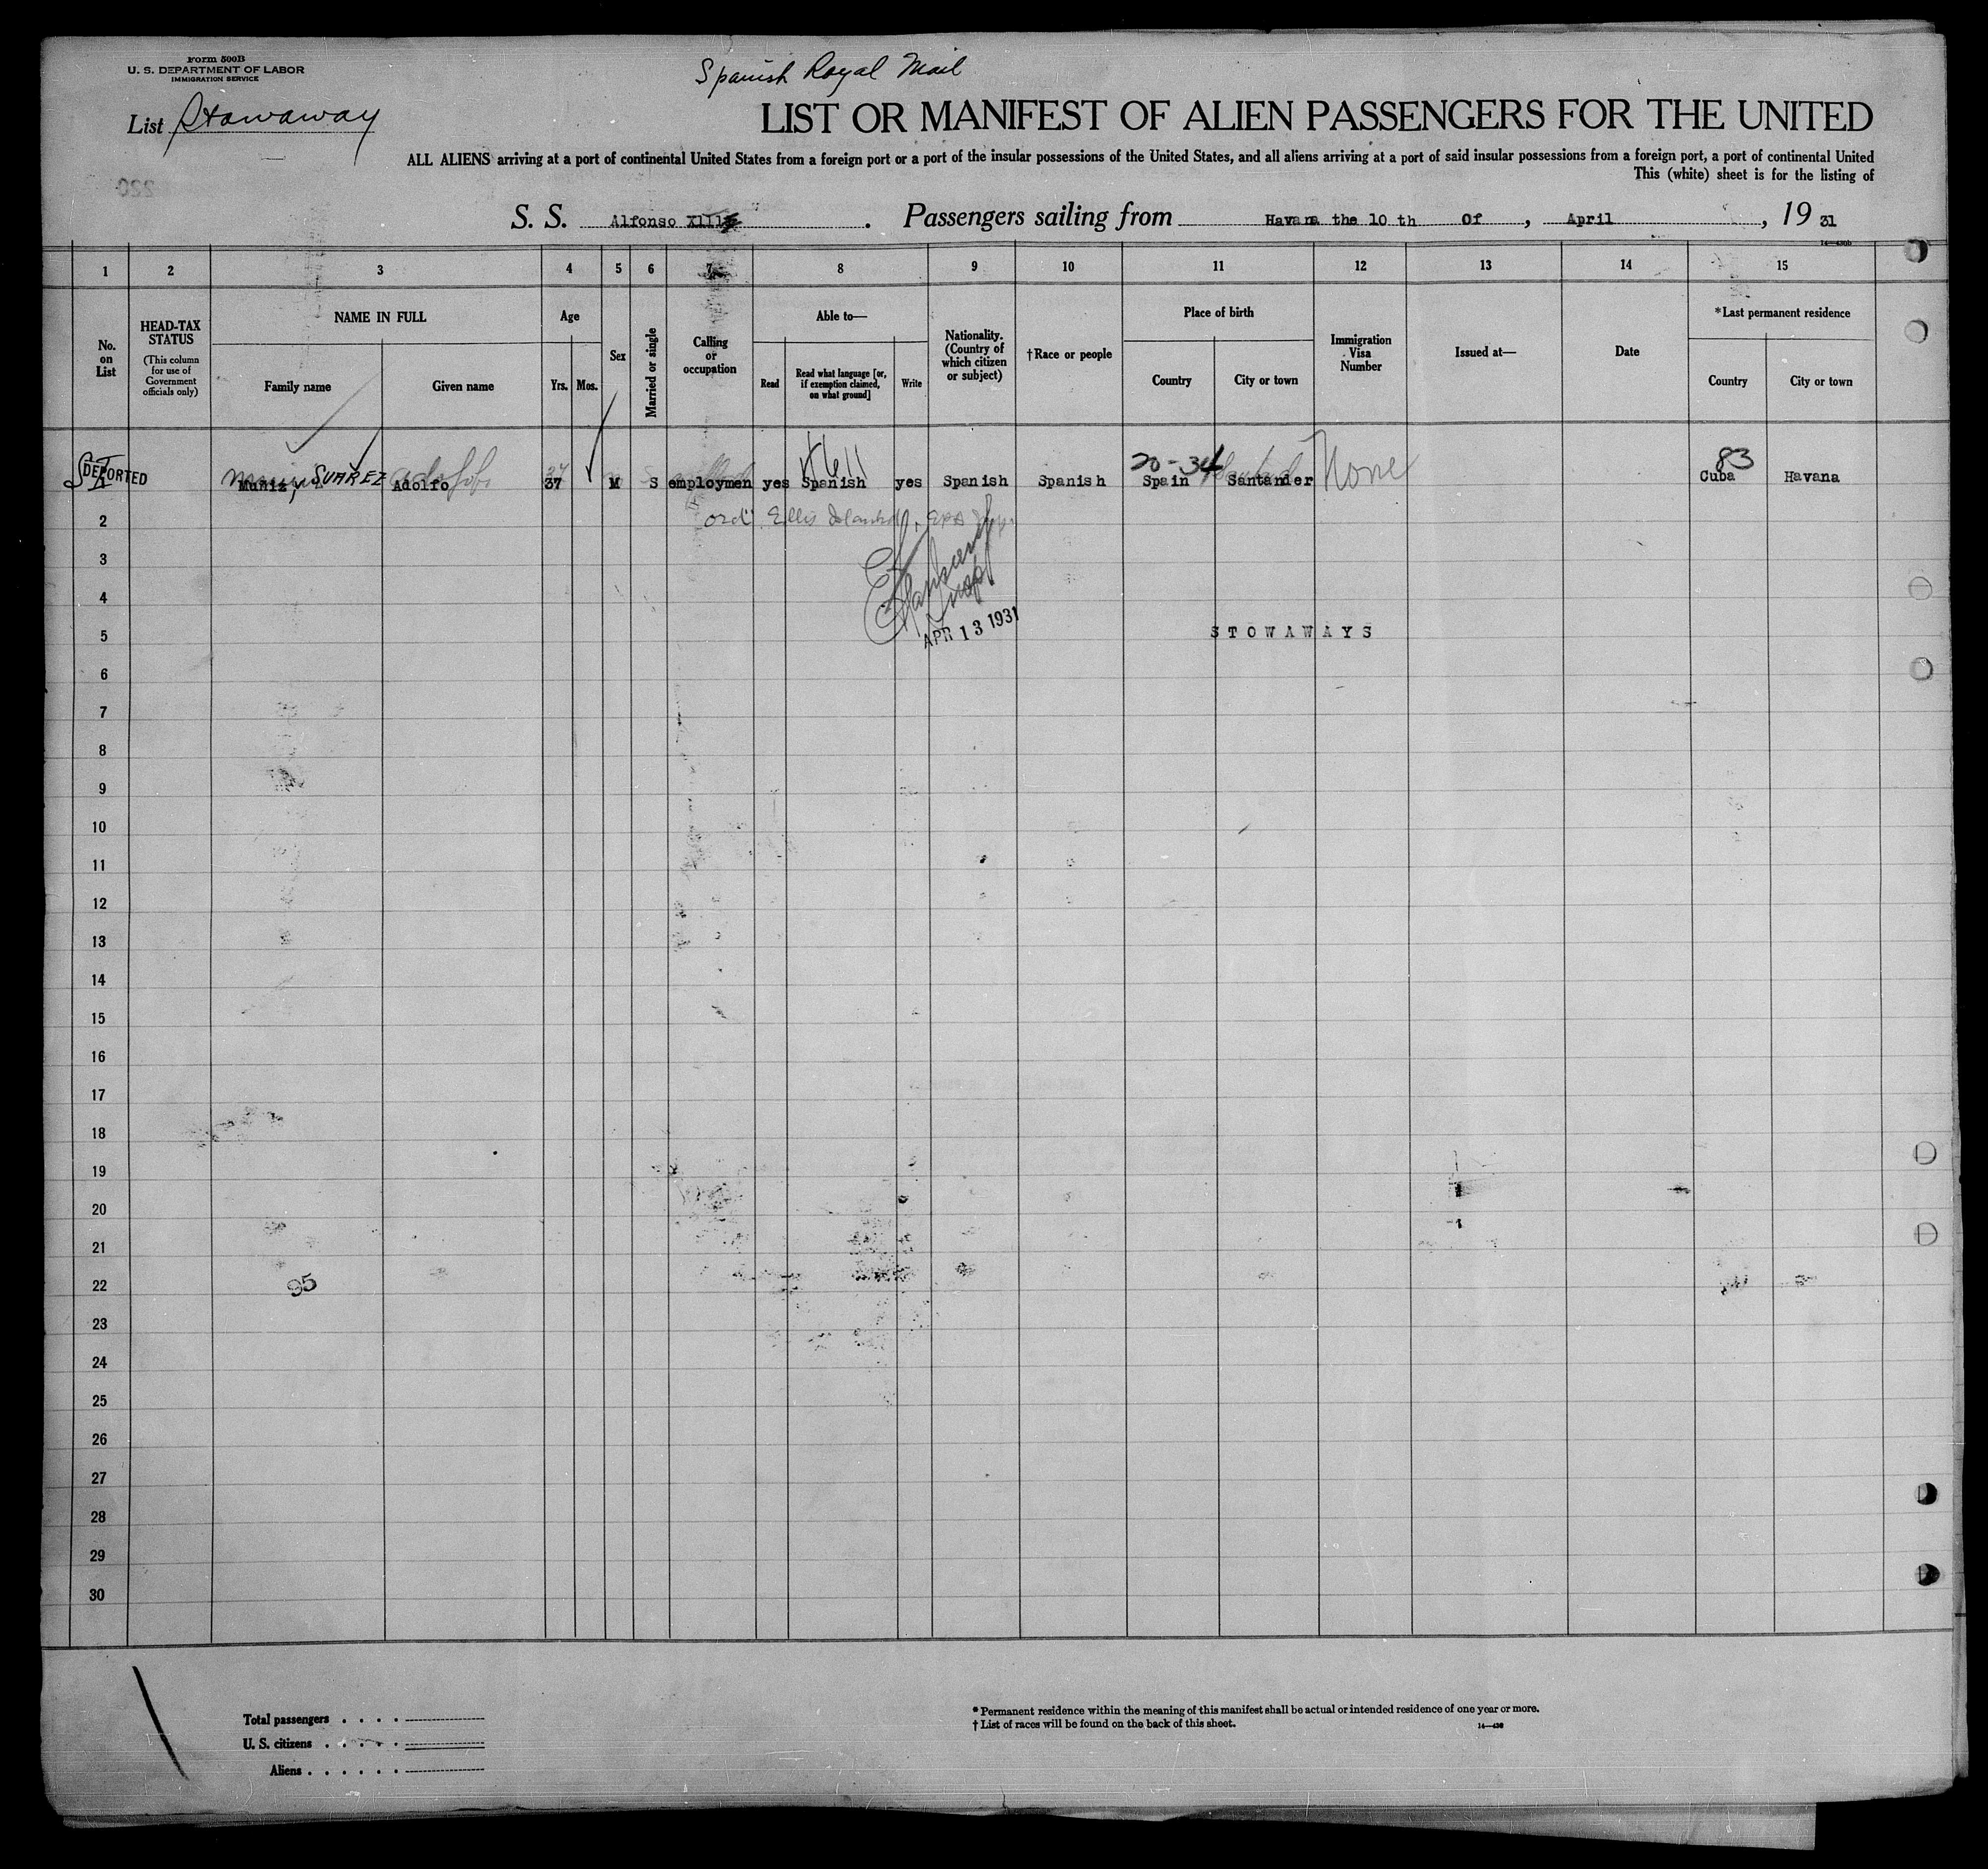 Form 500B
U. S. DEPARTMENT OF LABOR
IMMIGRATION SERVICE
Spanish Royal Mail
List Stowaway
LIST OR MANIFEST OF ALIEN PASSENGERS FOR THE UNITED
ALL ALIENS arriving at a port of continental United States from a foreign port or a port of the insular possessions of the United States, and all aliens arriving at a port of said insular possessions from a foreign port, a port of continental United
This (white) sheet is for the listing of
220
S. S. Alfonso X111 . Passengers sailing from Havana the 10 th Of , April , 19 31
14—430b
1 2 3 4 5 6 7 8 9 10 11 12 13 14 15
No. on List
HEAD-TAX STATUS
(This column for use of Government officials only)
NAME IN FULL
Family name
Given name
Age
Yrs.
Mos.
Sex
Married or single
Calling or occupation
Able to—
Read
Read what language [or, if exemption claimed, on what ground]
Write
Nationality. (Country of which citizen or subject)
†Race or people
Place of birth
Country
City or town
Immigration Visa Number
Issued at—
Date
*Last permanent residence
Country
City or town
DEPORTED Muñiz, SUAREZ Adolfo 37 M S employmen yes Spanish yes Spanish Spanish 20-34 Spain Santander None 83 Cuba Havana
2 ord Ellis Island
3
4
5 APR 13 1931 STOWAWAYS
6
7
8
9
10
11
12
13
14
15
16
17
18
19
20
21
22 95
23
24
25
26
27
28
29
30
Total passengers . . . .
U. S. citizens . . . . .
Aliens . . . . . .
* Permanent residence within the meaning of this manifest shall be actual or intended residence of one year or more.
† List of races will be found on the back of this sheet.
14—430